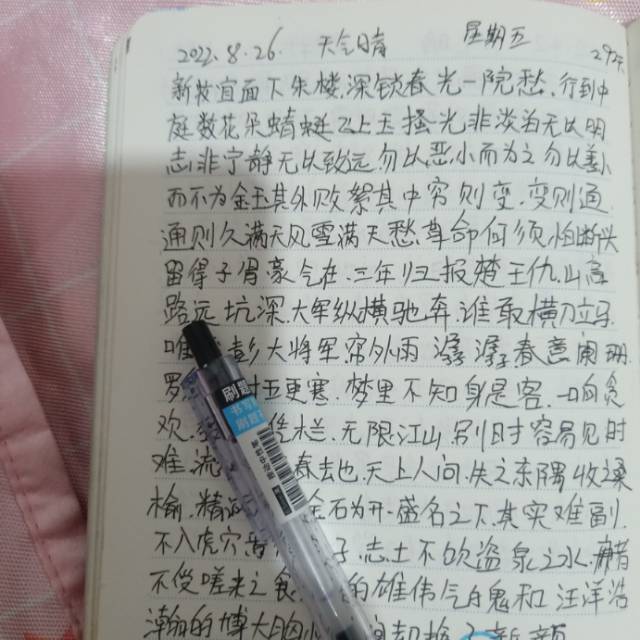 2022.8.26. 天气晴 星期五
29℃
新妆宜面下朱楼深锁春光一院愁,行到中
庭数花朵蜻蜓飞上玉搔光非淡泊无以明
志非宁静无以致远.勿以恶小而为之勿以善小
而不为金玉其外败絮其中穷则变.变则通
通则久满天风雪满天愁,革命何须怕断头
留得子胥豪气在.三年归报楚王仇.山高
路远坑深大军纵横驰奔.谁敢横刀立马
唯 彭大将军帘外雨潺潺春意阑珊
罗 五更寒.梦里不知身是客.一晌贪
欢. 栏.无限江山.别时容易见时
难.流 春去也.天上人间.失之东隅收之桑
榆.精 金石为开.盛名之下.其实难副
不入虎穴 子.志士不饮盗泉之水.廉者
不受嗟来之食 的雄伟气魄和汪洋浩
瀚的博大胸 却换 颜